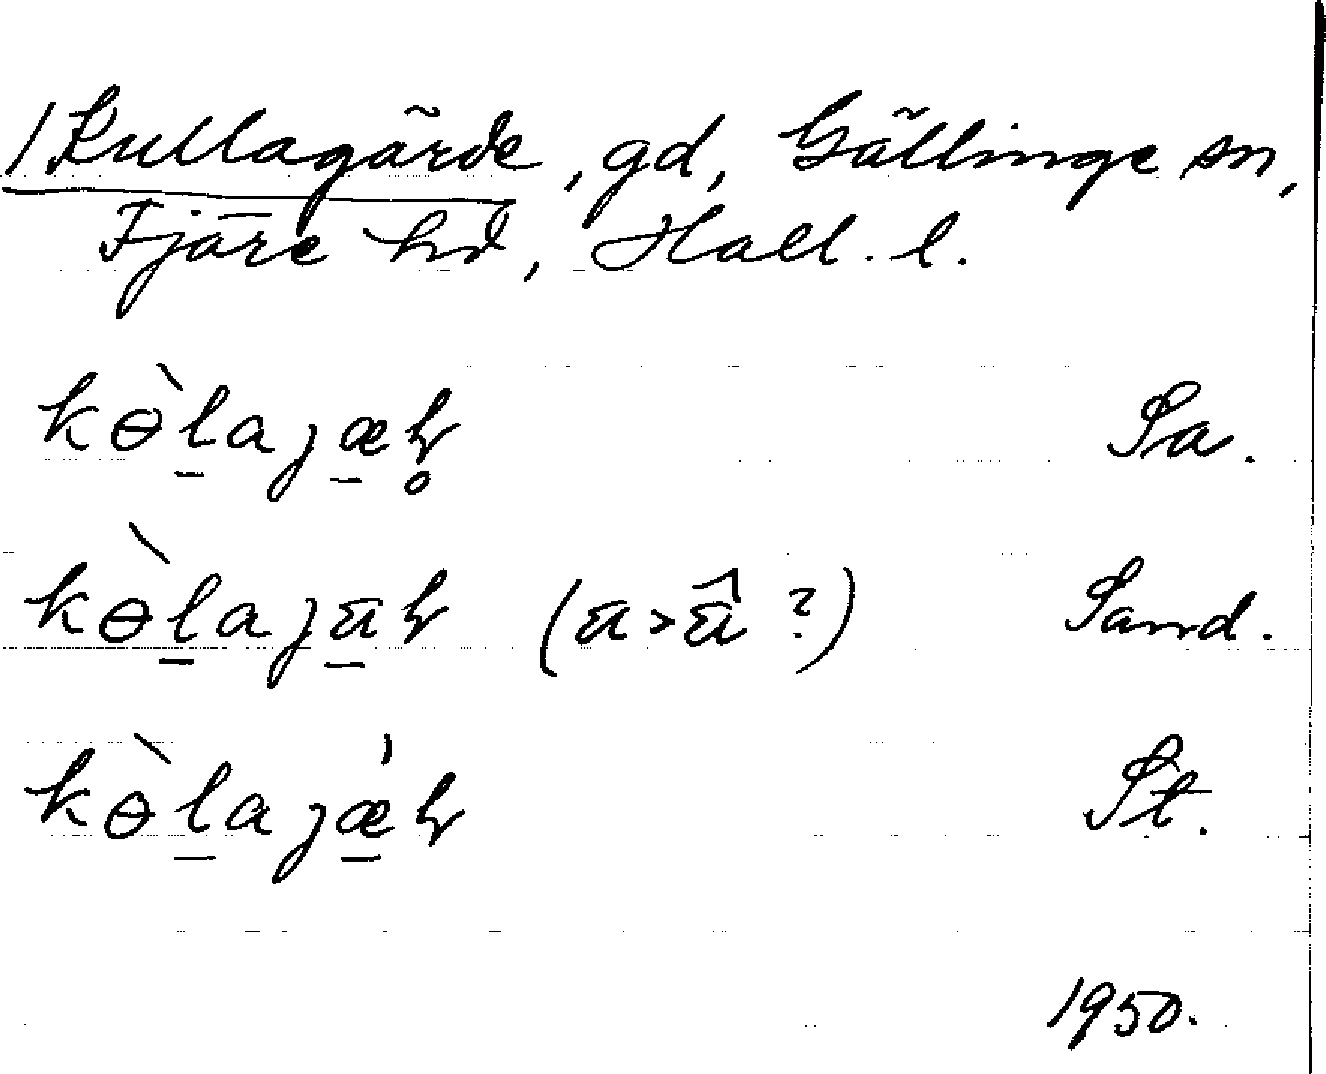 /Kullagärde, gd, Gällinge sn,
Fjäre hd, Hall. l.
kɵ̀l̠ajæ̠ꝜSa.
kɵ̀l̠aja̠ (a>â ?) Sand.
kɵ̀l̠ajǽ̠ St.
1950.